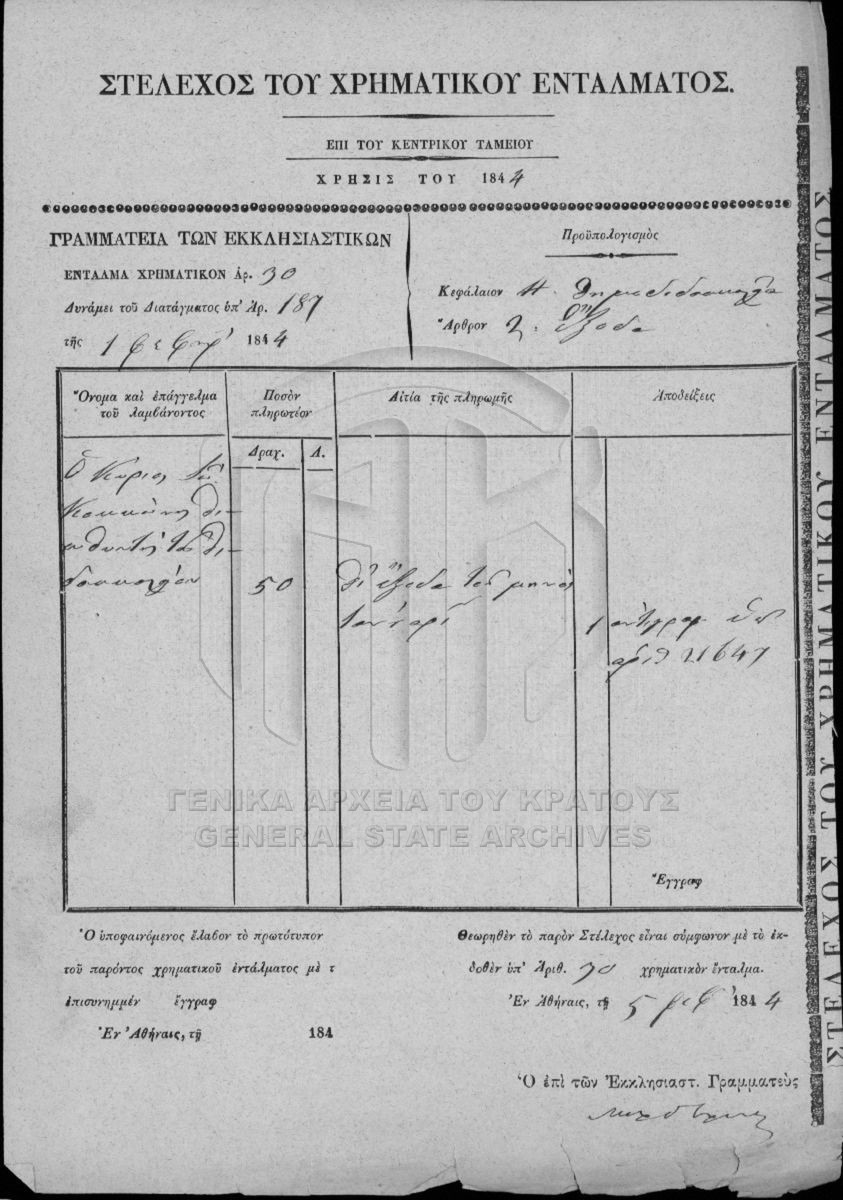 ΣΤΕΛΕΧΟΣ ΤΟΥ ΧΡΗΜΑΤΙΚΟΥ ΕΝΤΑΛΜΑΤΟΣ.
ΕΠΙ ΤΟΥ ΚΕΝΤΡΙΚΟΥ ΤΑΜΕΙΟΥ
ΧΡΗΣΙΣ ΤΟΥ 1844
ΓΡΑΜΜΑΤΕΙΑ ΤΩΝ ΕΚΚΛΗΣΙΑΣΤΙΚΩΝ
ΕΝΤΑΛΜΑ ΧΡΗΜΑΤΙΚΟΝ Ἀρ. 30
Δυνάμει τοῦ Διατάγματος ὑπ' Ἀρ. 187
τῆς 1 φεβρ 1844
Προϋπολογισμὸς
Κεφάλαιον Η.
Ἄρθρον 2: ἔξοδα
Ὄνομα καὶ ἐπάγγελμα
τοῦ λαμβάνοντος
Ποσὸν
πληρωτέον
Αἰτία τῆς πληρωμῆς
Ἀποδείξεις
Δραχ.
Λ.
Ὁ Κύριος
διευθυντὴς τοῦ δι-
δασκαλείου
50
δι' ἔξοδα τοῦ μηνὸς
1 ἀντίγραφ ὑπ
ἀριθ 21647
ΓΕΝΙΚΑ ΑΡΧΕΙΑ ΤΟΥ ΚΡΑΤΟΥΣ
GENERAL STATE ARCHIVES
Ἔγγραφ
Ὁ ὑποφαινόμενος ἔλαβον τὸ πρωτότυπον
τοῦ παρόντος χρηματικοῦ ἐντάλματος μὲ τ
ἐπισυνημμέν ἔγγραφ
Ἐν Ἀθήναις, τῇ 184
Θεωρηθὲν τὸ παρὸν Στέλεχος εἶναι σύμφωνον μὲ τὸ ἐκ-
δοθὲν ὑπ' Ἀριθ. 30 χρηματικὸν ἔνταλμα.
Ἐν Ἀθήναις, τῇ 5 φεβ 1844
Ὁ ἐπὶ τῶν Ἐκκλησιαστ. Γραμματεὺς
ΣΤΕΛΕΧΟΣ ΤΟΥ ΧΡΗΜΑΤΙΚΟΥ ΕΝΤΑΛΜΑΤΟΣ